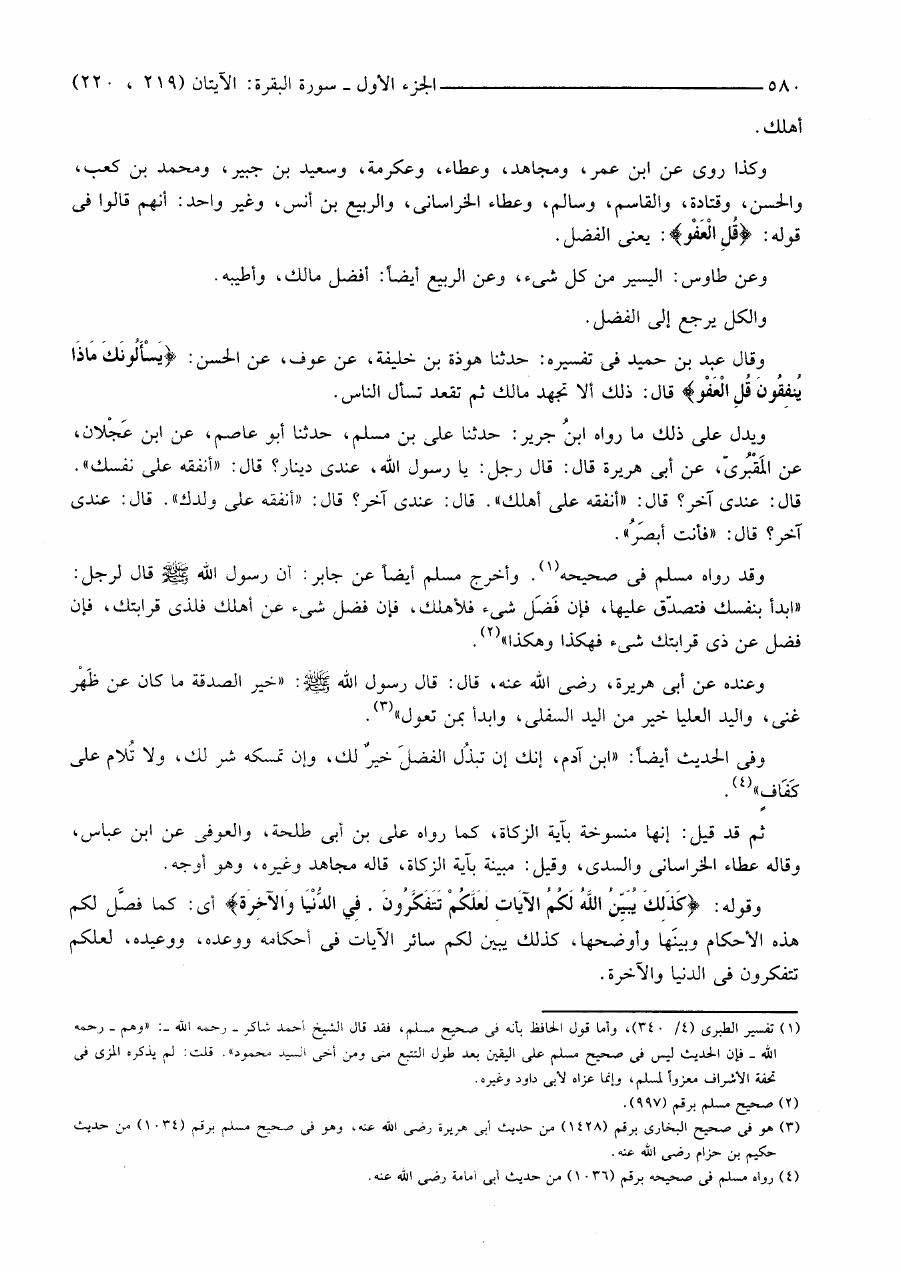 ٥٨٠ ـــــــــــــــــــــ الجزء الأول ـ سورة البقرة: الآيتان (٢١٩ ، ٢٢٠)
أهلك.
وكذا روى عن ابن عمر، ومجاهد، وعطاء، وعكرمة، وسعيد بن جبير، ومحمد بن كعب،
والحسن، وقتادة، والقاسم، وسالم، وعطاء الخراسانى، والربيع بن أنس، وغير واحد: أنهم قالوا فى
قوله: ﴿قُلِ الْعَفْوَ﴾: يعنى الفضل.
وعن طاوس: اليسير من كل شىء، وعن الربيع أيضاً: أفضل مالك، وأطيبه.
والكل يرجع إلى الفضل.
وقال عبد بن حميد فى تفسيره: حدثنا هوذة بن خليفة، عن عوف، عن الحسن: ﴿يَسْأَلُونَكَ مَاذَا
يُنفِقُونَ قُلِ الْعَفْوَ﴾ قال: ذلك ألا تجهد مالك ثم تقعد تسأل الناس.
ويدل على ذلك ما رواه ابنُ جرير: حدثنا على بن مسلم، حدثنا أبو عاصم، عن ابن عَجْلان،
عن المَقْبُرىّ، عن أبى هريرة قال: قال رجل: يا رسول الله، عندى دينار؟ قال: «أنفقه على نفسك».
قال: عندى آخر؟ قال: «أنفقه على أهلك». قال: عندى آخر؟ قال: «أنفقه على ولدك». قال: عندى
آخر؟ قال: «فأنت أبصَرُ».
وقد رواه مسلم فى صحيحه(١). وأخرج مسلم أيضاً عن جابر: أن رسول الله ﷺ قال لرجل:
«ابدأ بنفسك فتصدّق عليها، فإن فَضَل شىء فلأهلك، فإن فضل شىء عن أهلك فلذى قرابتك، فإن
فضل عن ذى قرابتك شىء فهكذا وهكذا»(٢).
وعنده عن أبى هريرة، رضى الله عنه، قال: قال رسول الله ﷺ: «خير الصدقة ما كان عن ظَهْر
غنى، واليد العليا خير من اليد السفلى، وابدأ بمن تعول»(٣).
وفى الحديث أيضاً: «ابن آدم، إنك إن تبذُل الفضلَ خيرٌ لك، وإن تمسكه شر لك، ولا تُلام على
كَفَافٍ»(٤).
ثم قد قيل: إنها منسوخة بآية الزكاة، كما رواه على بن أبى طلحة، والعوفى عن ابن عباس،
وقاله عطاء الخراسانى والسدى، وقيل: مبينة بآية الزكاة، قاله مجاهد وغيره، وهو أوجه.
وقوله: ﴿كَذَلِكَ يُبَيِّنُ اللَّهُ لَكُمُ الآيَاتِ لَعَلَّكُمْ تَتَفَكَّرُونَ . فِي الدُّنْيَا وَالآخِرَةِ﴾ أى: كما فصَّل لكم
هذه الأحكام وبينَها وأوضحها، كذلك يبين لكم سائر الآيات فى أحكامه ووعده، ووعيده، لعلكم
تتفكرون فى الدنيا والآخرة.
(١) تفسير الطبرى (٤/ ٣٤٠)، وأما قول الحافظ بأنه فى صحيح مسلم، فقد قال الشيخ أحمد شاكر ـ رحمه الله ـ: «وهم ـ رحمه
الله ـ فإن الحديث ليس فى صحيح مسلم على اليقين بعد طول التتبع منى ومن أخى السيد محمود». قلت: لم يذكره المزى فى
تحفة الأشراف معزواً لمسلم، وإنما عزاه لأبى داود وغيره.
(٢) صحيح مسلم برقم (٩٩٧).
(٣) هو فى صحيح البخارى برقم (١٤٢٨) من حديث أبى هريرة رضى الله عنه، وهو فى صحيح مسلم برقم (١٠٣٤) من حديث
حكيم بن حزام رضى الله عنه.
(٤) رواه مسلم فى صحيحه برقم (١٠٣٦) من حديث أبى أمامة رضى الله عنه.